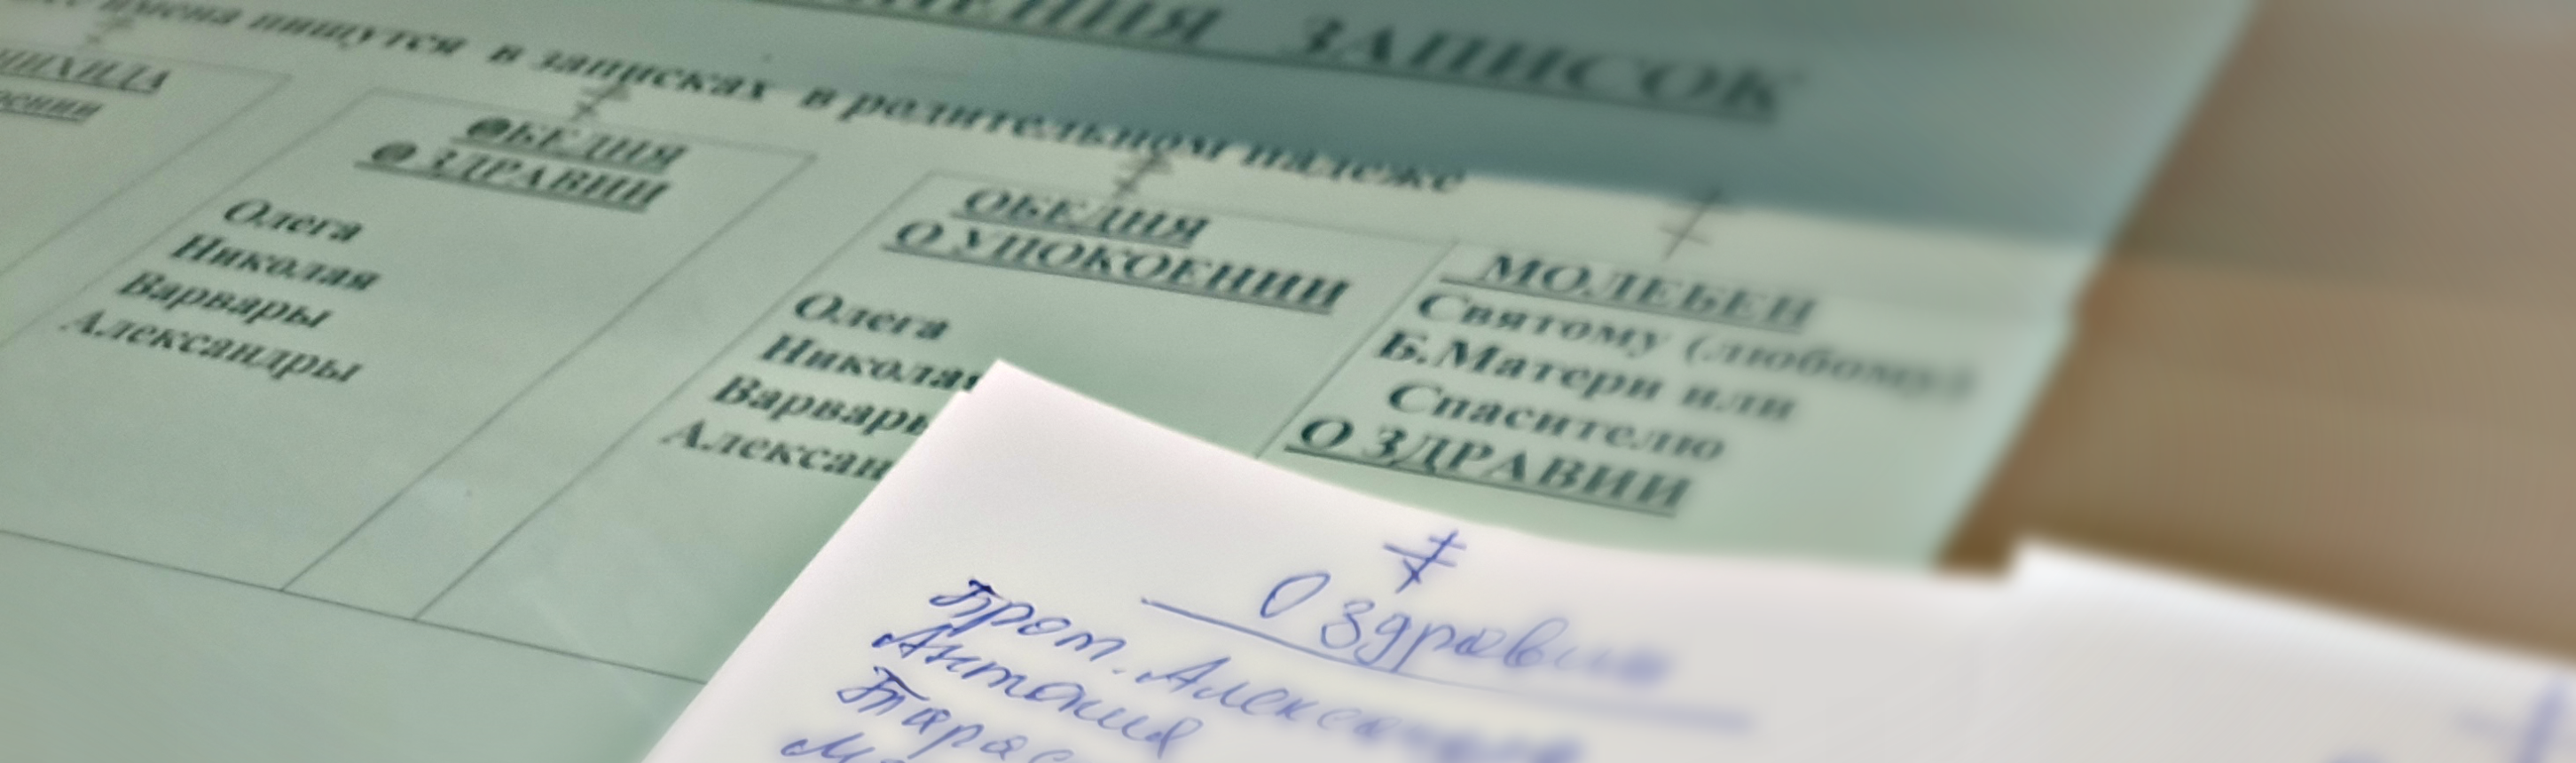 ЗАПИСОК
имена пишутся в записках в родительном падеже
ОБЕДНЯ
О ЗДРАВИИ
Олега
Николая
Варвары
Александры
ОБЕДНЯ
О УПОКОЕНИИ
Олега
Николая
Варвары
Алексан
МОЛЕБЕН
Святому (любому)
Б.Матери или
Спасителю
О ЗДРАВИИ
О здравии
Прот. Александра
Антония